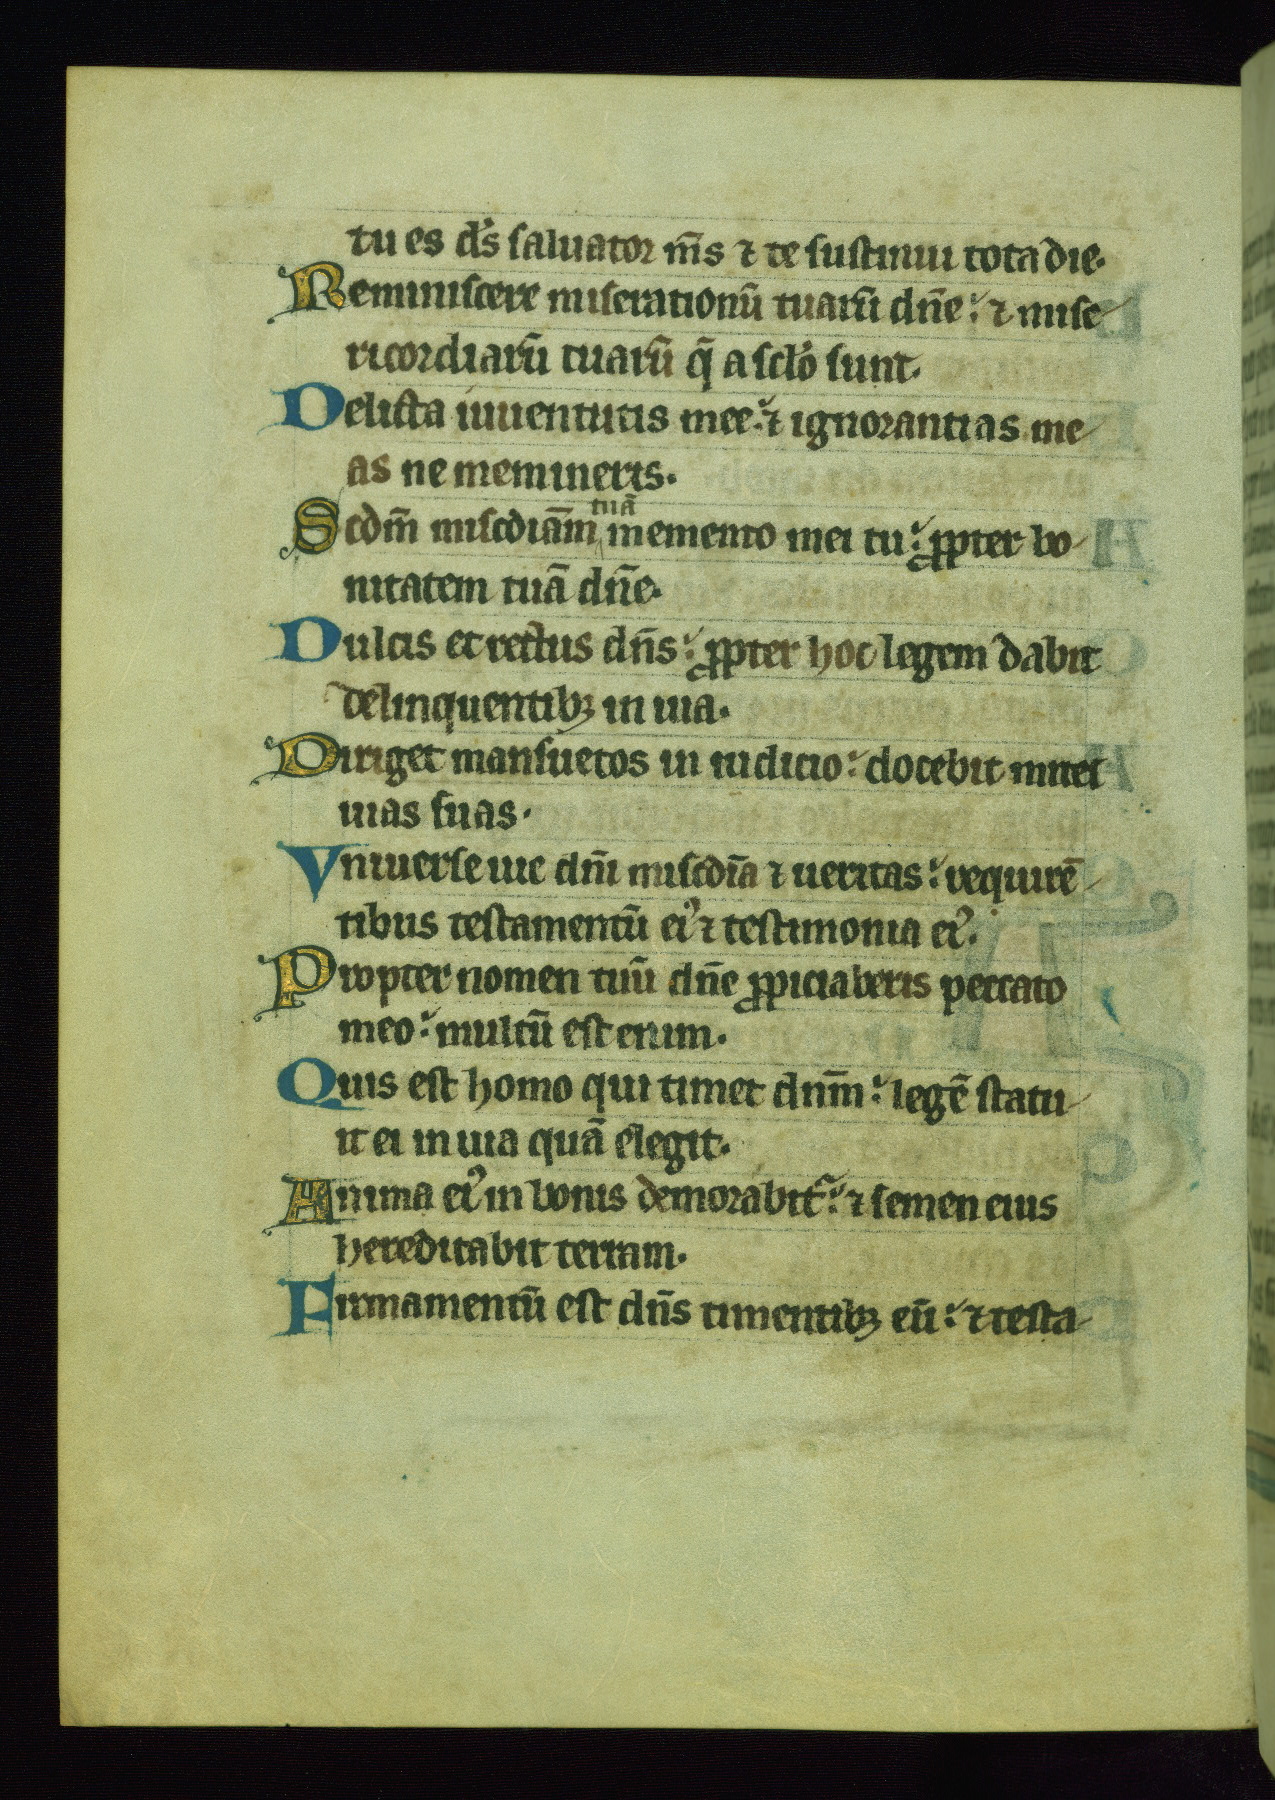 tu es ds̄ saluator ms̄ ⁊ te sustinui tota die.
Reminiscere miserationū tuarū dn̄e: ⁊ mise
ricordiarū tuarū q̄ a sclo̓ sunt.
Delicta iuuentutis mee: ⁊ ignorantias me
as ne memineris.
Scdm̄ miscdiām tuā memento mei tu: ꝓpter bo
nitatem tuā dn̄e.
Dulcis et rectus dn̄s: ꝓpter hoc legem dabit
delinquentibꝫ in uia.
Diriget mansuetos in iudicio: docebit mites
uias suas.
Vniuerse uie dn̄i miscdīa ⁊ ueritas: requirē
tibus testamentū eiꝰ ⁊ testimonia eiꝰ.
Propter nomen tuū dn̄e ꝓpiciaberis peccato
meo: multū est enim.
Quis est homo qui timet dn̄m: legē statu
it ei in uia quā elegit.
Anima eiꝰ in bonis demorabit᷑: ⁊ semen eius
hereditabit terram.
Firmamentū est dn̄s timentibꝫ eū: ⁊ testa